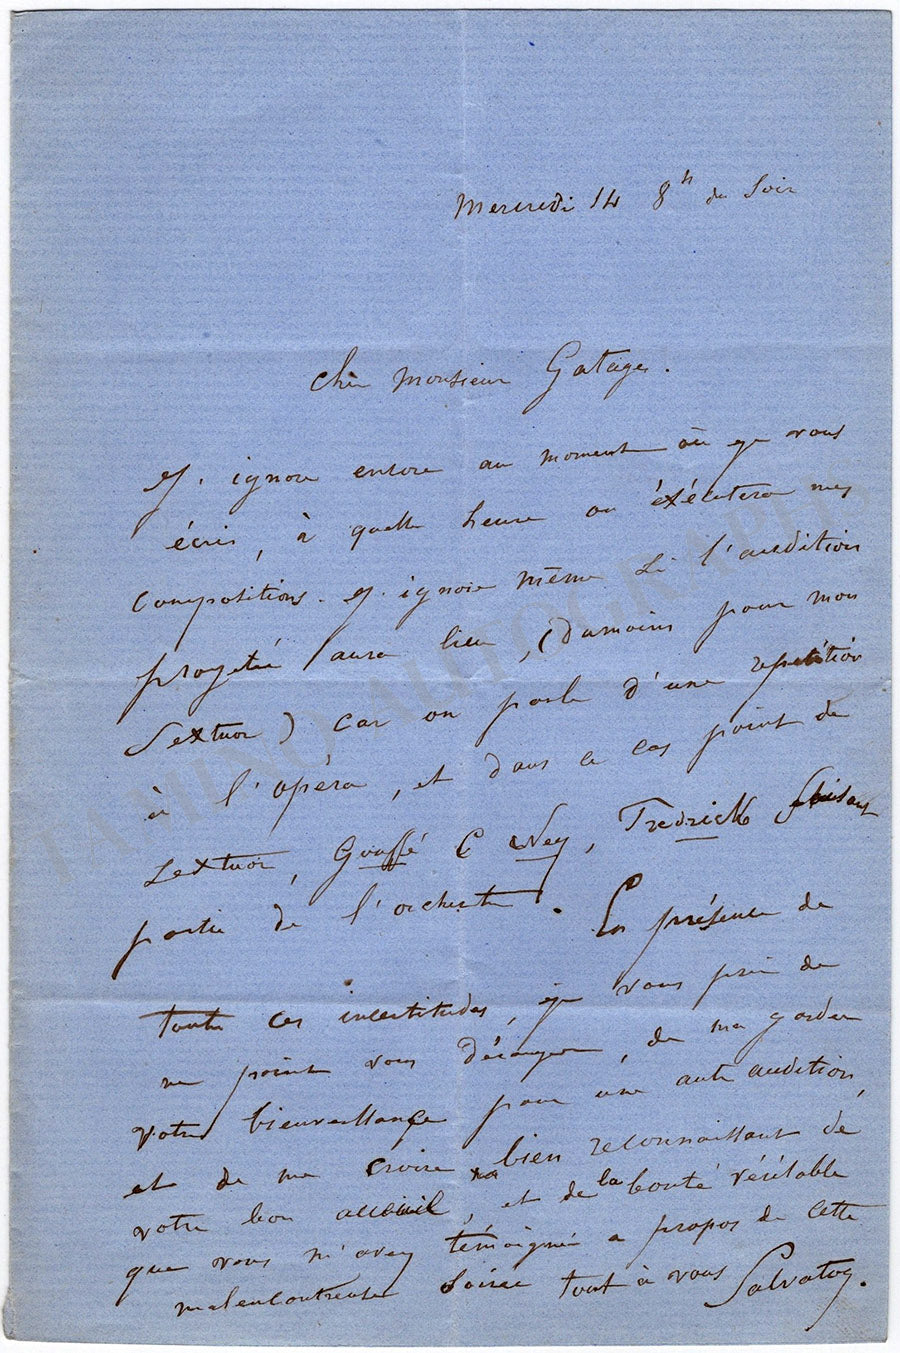 Mercredi 14 8h du Soir
Cher Monsieur Gatayes.
J'ignore encore au moment où je vous
écris, à quelle heure on éxécutera mes
compositions. J'ignore même si l'audition
projetée aura lieu, (du moins pour mon
Sextuor) car on parle d'une repétition
à l'opéra, et dans ce cas point de
Sextuor, Gouffé & Ney, faisant
partie de l'orchestre. En présence de
toutes ces incertitudes, je vous prie de
ne point vous déranger, de me garder
votre bienveillance pour une autre audition,
et de me croire bien reconnaissant de
votre bon acceuil, et de la bonté véritable
que vous m'avez témoignée a propos de cette
malencontreuse soirée tout à vous
TAMINO AUTOGRAPHS